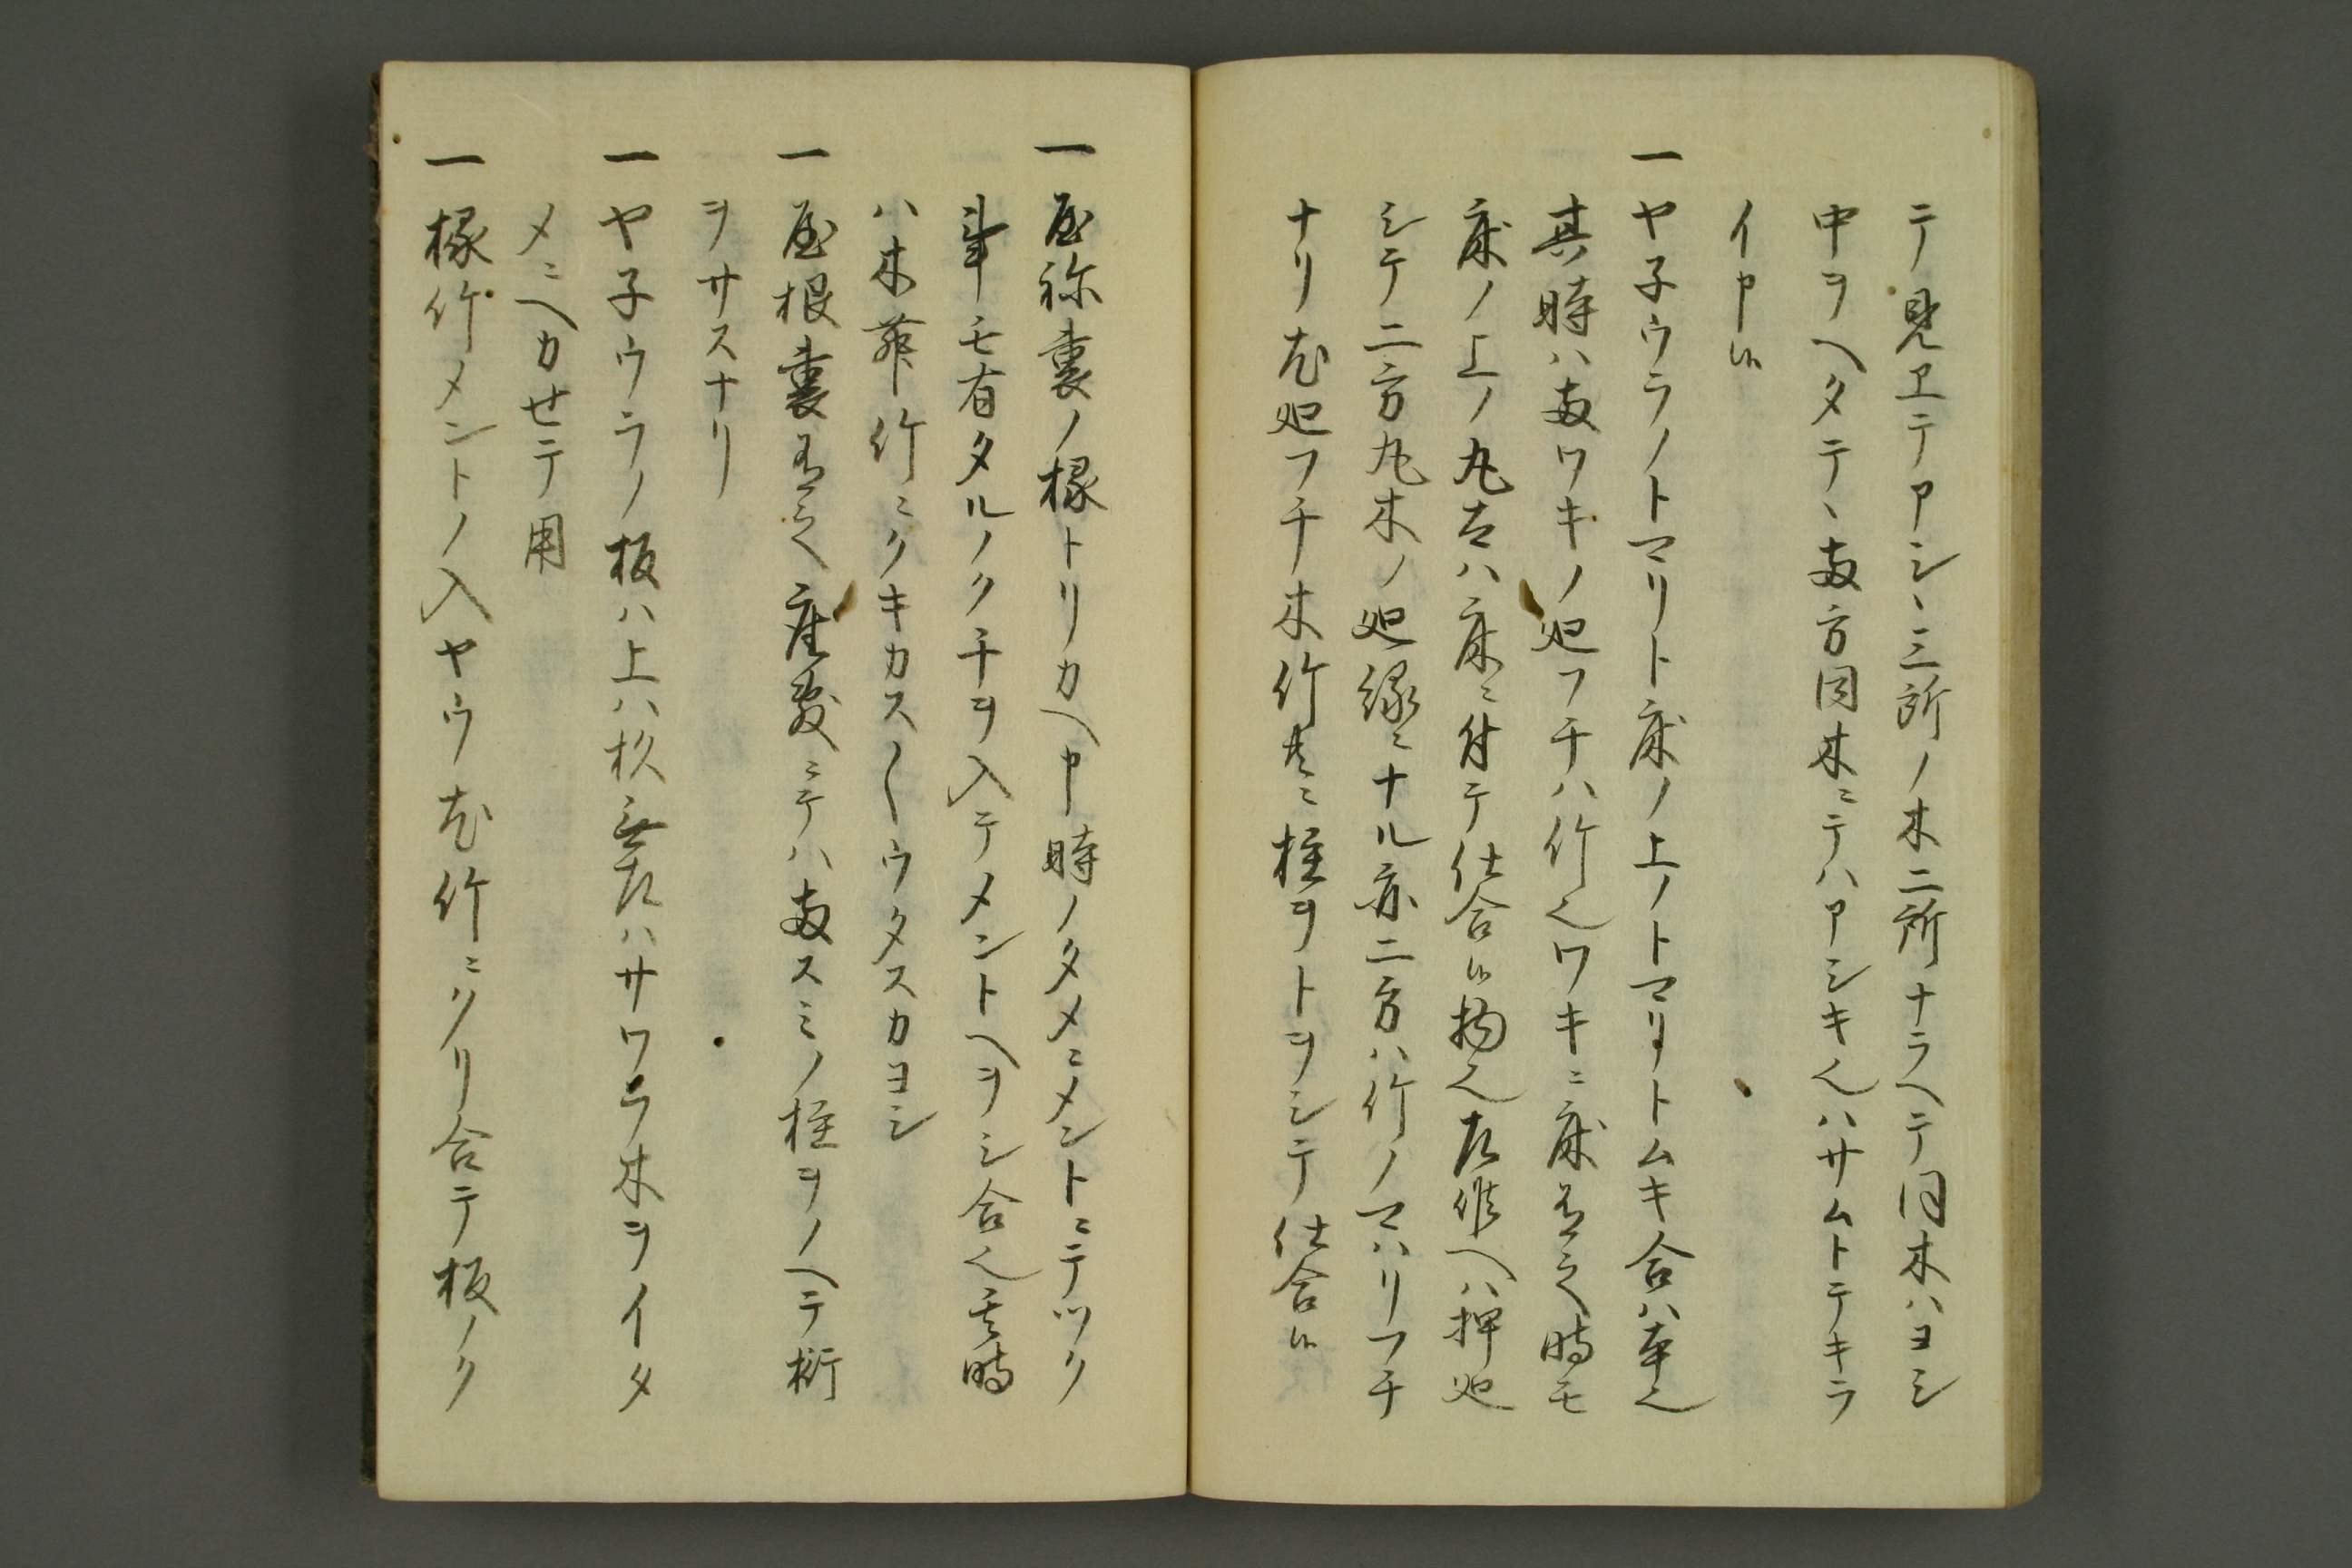 テ見エテアシヽ三所ノ木二所ナラヘテ同木ハヨシ
中ヲヘタテヽ両方同木ニテハアシキ也ハサムトテキラ
イ申候
一ヤ子ウラノトマリト床ノ上ノトマリトムキ合ハ本也
其時ハ両ワキノ廻フチハ竹也ワキニ床有之時モ
床ノ上ノ丸太ハ床ニ付テ仕合候物也左候ヘハ押廻
シテ二方丸木ノ廻縁ニナル亦二方ハ竹ノマハリフチ
ナリ尤廻フチ木竹共ニ柱ヲトヲシテ仕合候
一屋祢裏ノ椽トリカヘ申時ノタメニメントニテツク
事モ有タルノクチヲ入テメントヘヲシ合也其時
ハ木竹ニクキカス〳〵ウタスカヨシ
一屋根裏有之座敷ニテハ両スミノ柱ヲノヘテ桁
ヲサスナリ
一ヤ子ウラノ板ハ上ハ杉無左ハサワラ木ヲイタ
メニヘカせテ用
一椽竹メントノ入ヤウ尤竹ニクリ合テ板ノク